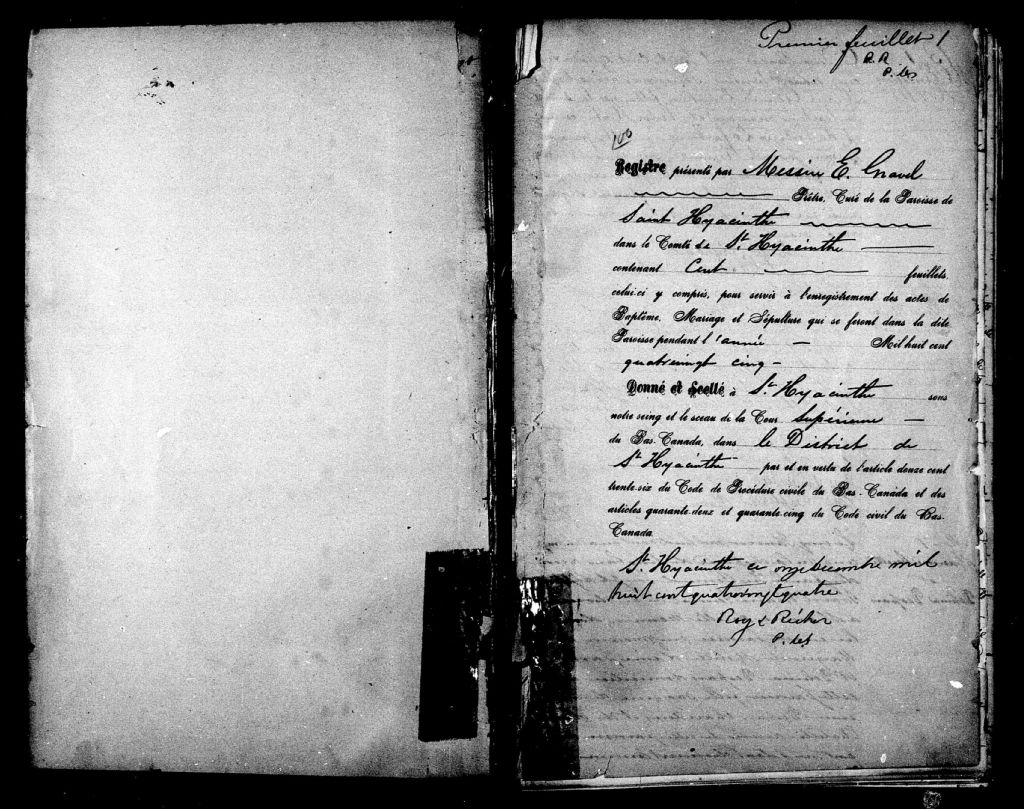 Premier feuillet 1
R. R
P. des
100
Registre présenté par Messire E. Gravel
Prêtre, Curé de la Paroisse de
Saint Hyacinthe
dans le Comté de St. Hyacinthe
contenant Cent feuillets,
celui-ci y compris, pour servir à l'enregistrement des actes de
Baptême, Mariage et Sépulture qui se feront dans la dite
Paroisse pendant l'année — Mil huit cent
quatrevingt cinq -
Donné et Scellé à St. Hyacinthe sous
notre seing et le sceau de la Cour Supérieure —
du Bas-Canada, dans le District de
St Hyacinthe par et en vertu de l'article douze cent
trente-six du Code de Procédure civile du Bas-Canada et des
articles quarante-deux et quarante-cinq du Code civil du Bas-
Canada
St. Hyacinthe ce onze decembre mil
huit cent quatrevingt quatre
Roy &